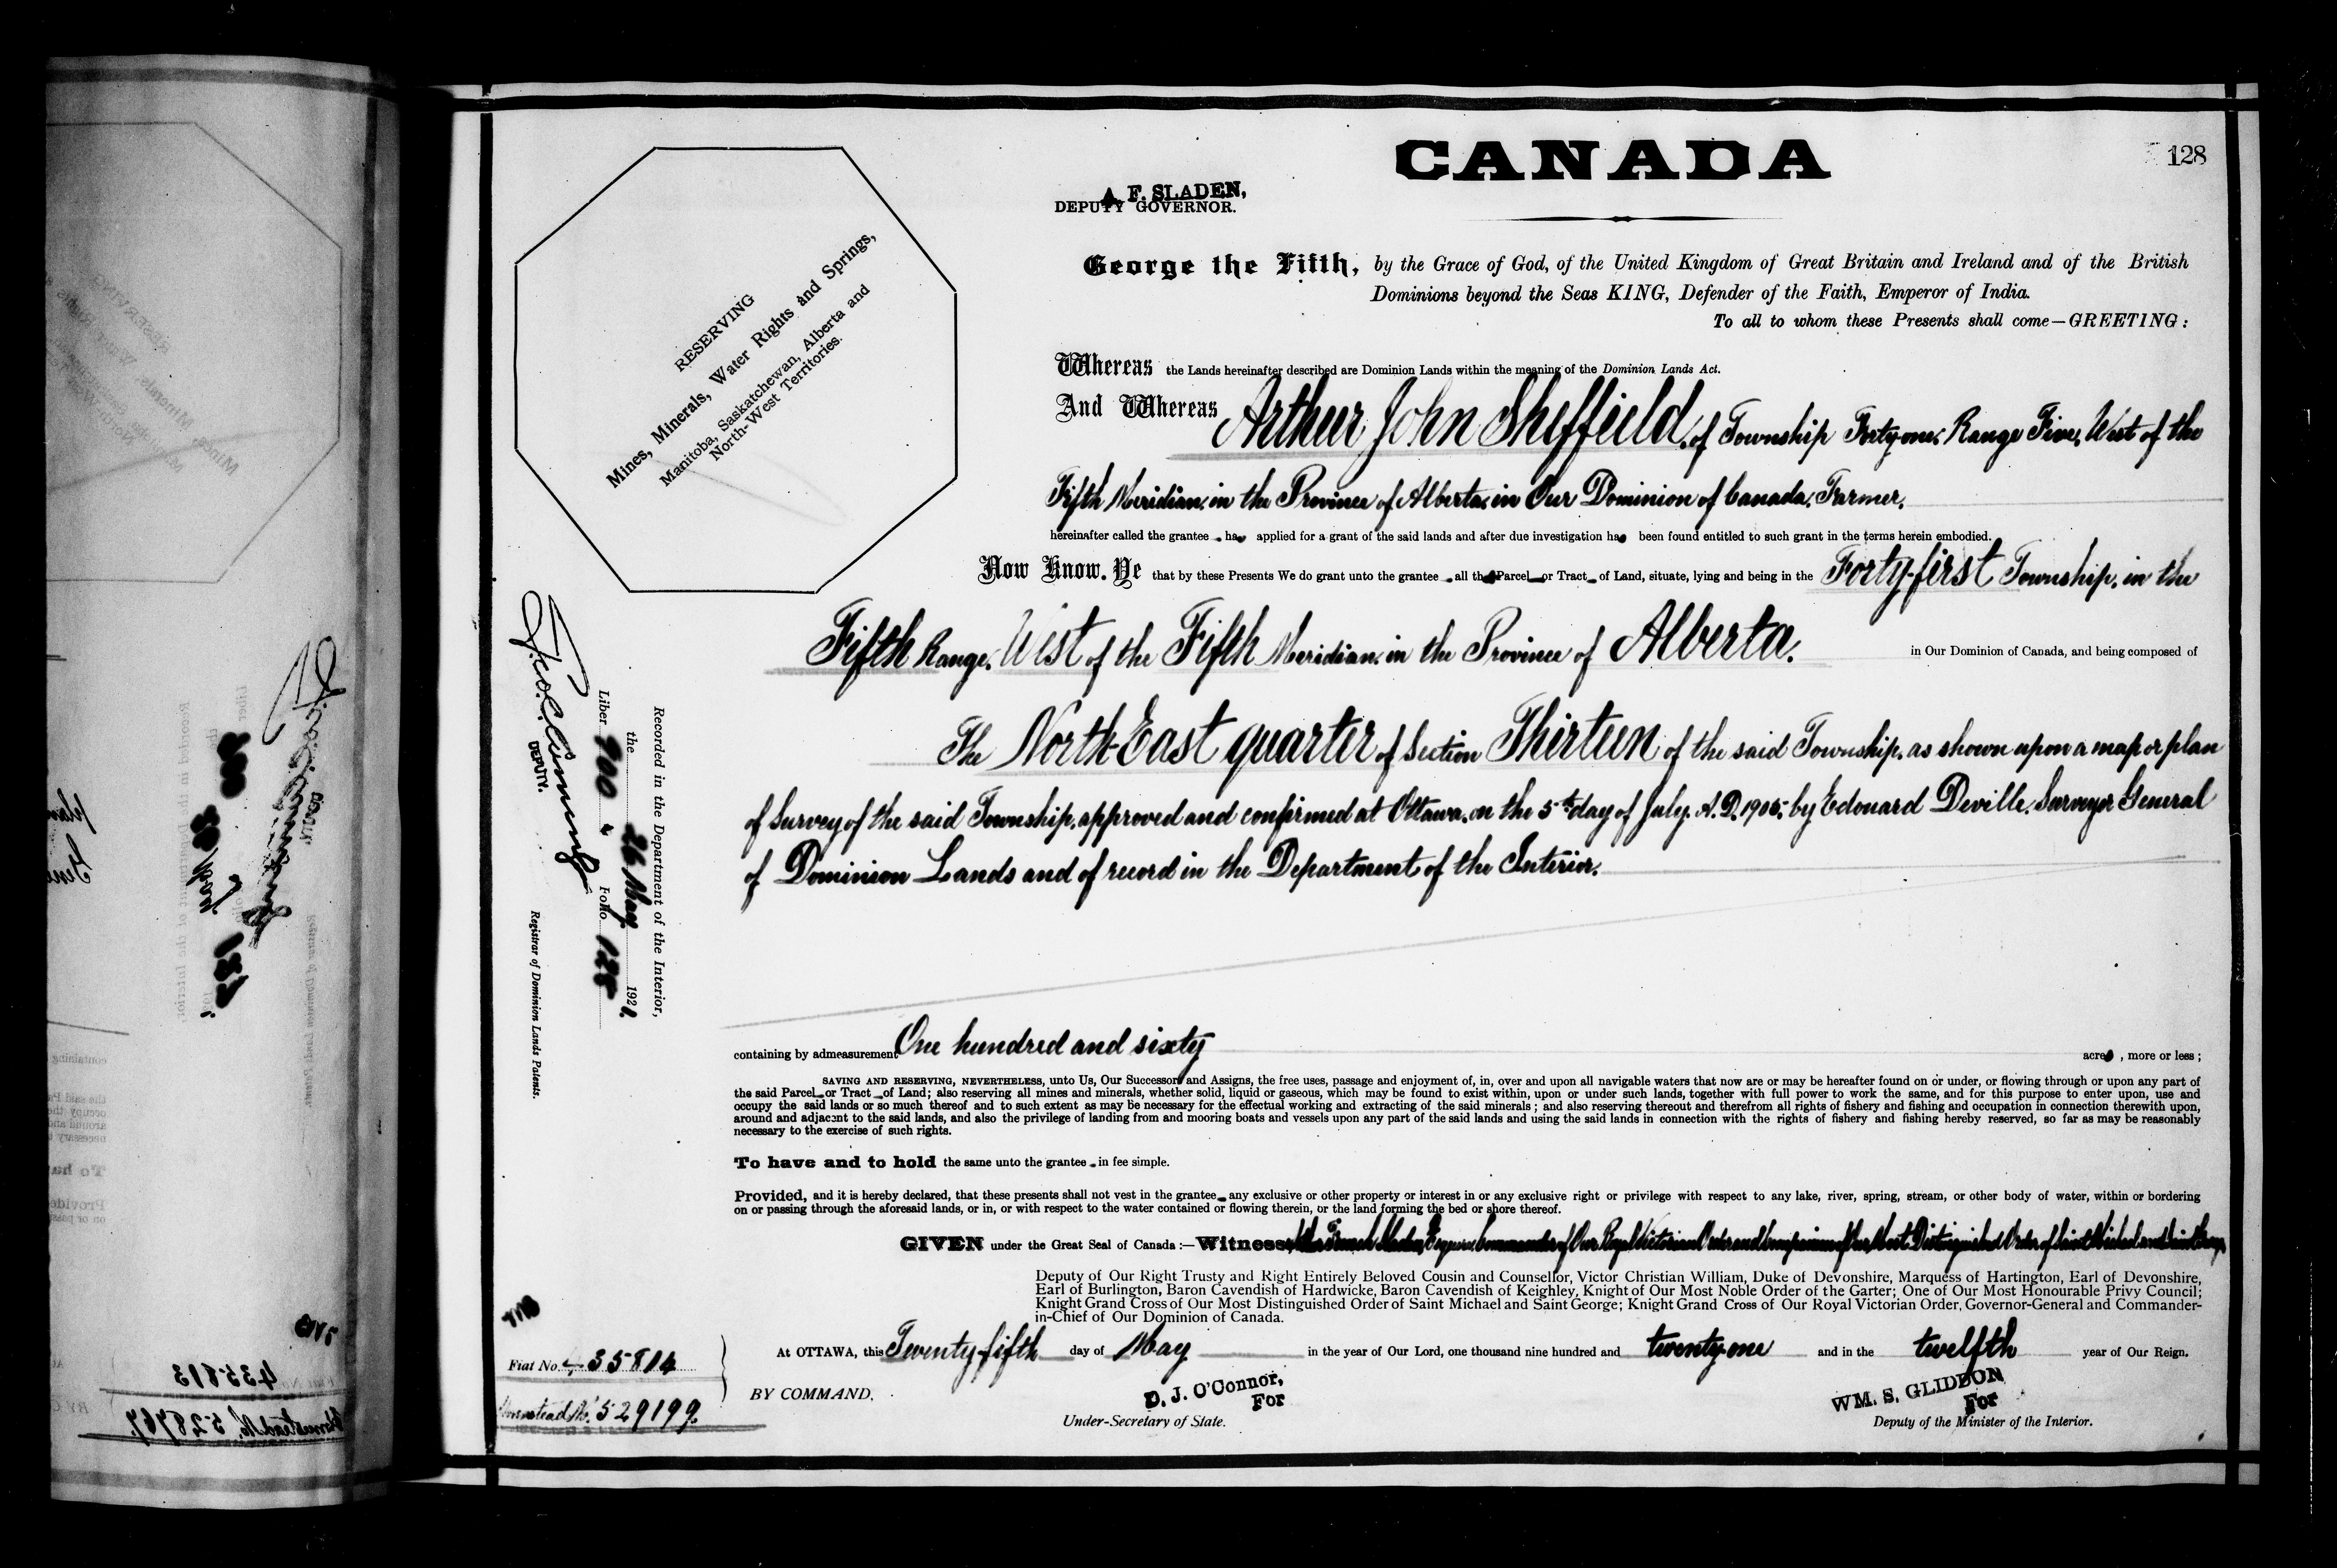 CANADA
128
A. F. SLADEN,
DEPUTY GOVERNOR.
RESERVING
Mines, Minerals, Water Rights and Springs,
Manitoba, Saskatchewan, Alberta and
North-West Territories.
George the Fifth, by the Grace of God, of the United Kingdom of Great Britain and Ireland and of the British
Dominions beyond the Seas KING, Defender of the Faith, Emperor of India.
To all to whom these Presents shall come—GREETING:
Whereas the Lands hereinafter described are Dominion Lands within the meaning of the Dominion Lands Act.
And Whereas Arthur John Sheffield, of Township Forty-one, Range Five, West of the
Fifth Meridian, in the Province of Alberta, in Our Dominion of Canada, Farmer,
hereinafter called the grantee, has applied for a grant of the said lands and after due investigation has been found entitled to such grant in the terms herein embodied.
Now Know Ye that by these Presents We do grant unto the grantee all that Parcel or Tract of Land, situate, lying and being in the Forty-first Township, in the
Fifth Range, West of the Fifth Meridian, in the Province of Alberta, in Our Dominion of Canada, and being composed of
The North-East quarter of Section Thirteen of the said Township, as shown upon a map or plan
of Survey of the said Township, approved and confirmed at Ottawa, on the 5th day of July, A.D. 1905, by Edouard Deville, Surveyor General
of Dominion Lands and of record in the Department of the Interior.
containing by admeasurement One hundred and sixty acres, more or less;
SAVING AND RESERVING, NEVERTHELESS, unto Us, Our Successors and Assigns, the free uses, passage and enjoyment of, in, over and upon all navigable waters that now are or may be hereafter found on or under, or flowing through or upon any part of
the said Parcel or Tract of Land; also reserving all mines and minerals, whether solid, liquid or gaseous, which may be found to exist within, upon or under such lands, together with full power to work the same, and for this purpose to enter upon, use and
occupy the said lands or so much thereof and to such extent as may be necessary for the effectual working and extracting of the said minerals; and also reserving thereout and therefrom all rights of fishery and fishing and occupation in connection therewith upon,
around and adjacent to the said lands, and also the privilege of landing from and mooring boats and vessels upon any part of the said lands and using the said lands in connection with the rights of fishery and fishing hereby reserved, so far as may be reasonably
necessary to the exercise of such rights.
To have and to hold the same unto the grantee in fee simple.
Provided, and it is hereby declared, that these presents shall not vest in the grantee any exclusive or other property or interest in or any exclusive right or privilege with respect to any lake, river, spring, stream, or other body of water, within or bordering
on or passing through the aforesaid lands, or in, or with respect to the water contained or flowing therein, or the land forming the bed or shore thereof.
GIVEN under the Great Seal of Canada:—Witness, Esquire, Commander of Our Royal Victorian Order and Companion of Our Most Distinguished Order of Saint Michael and Saint George,
Deputy of Our Right Trusty and Right Entirely Beloved Cousin and Counsellor, Victor Christian William, Duke of Devonshire, Marquess of Hartington, Earl of Devonshire,
Earl of Burlington, Baron Cavendish of Hardwicke, Baron Cavendish of Keighley, Knight of Our Most Noble Order of the Garter; One of Our Most Honourable Privy Council;
Knight Grand Cross of Our Most Distinguished Order of Saint Michael and Saint George; Knight Grand Cross of Our Royal Victorian Order, Governor-General and Commander-
in-Chief of Our Dominion of Canada.
At OTTAWA, this Twenty-fifth day of May in the year of Our Lord, one thousand nine hundred and twenty-one and in the twelfth year of Our Reign.
BY COMMAND,
D. J. O'Connor,
For
Under-Secretary of State.
WM. S. GLIDDON
For
Deputy of the Minister of the Interior.
Recorded in the Department of the Interior,
the 26 May 1921.
Liber 900 Folio 128
DEPUTY.
Registrar of Dominion Lands Patents.
Fiat No. 435814
Homestead No. 529199.
435813
Homestead No. 528767.